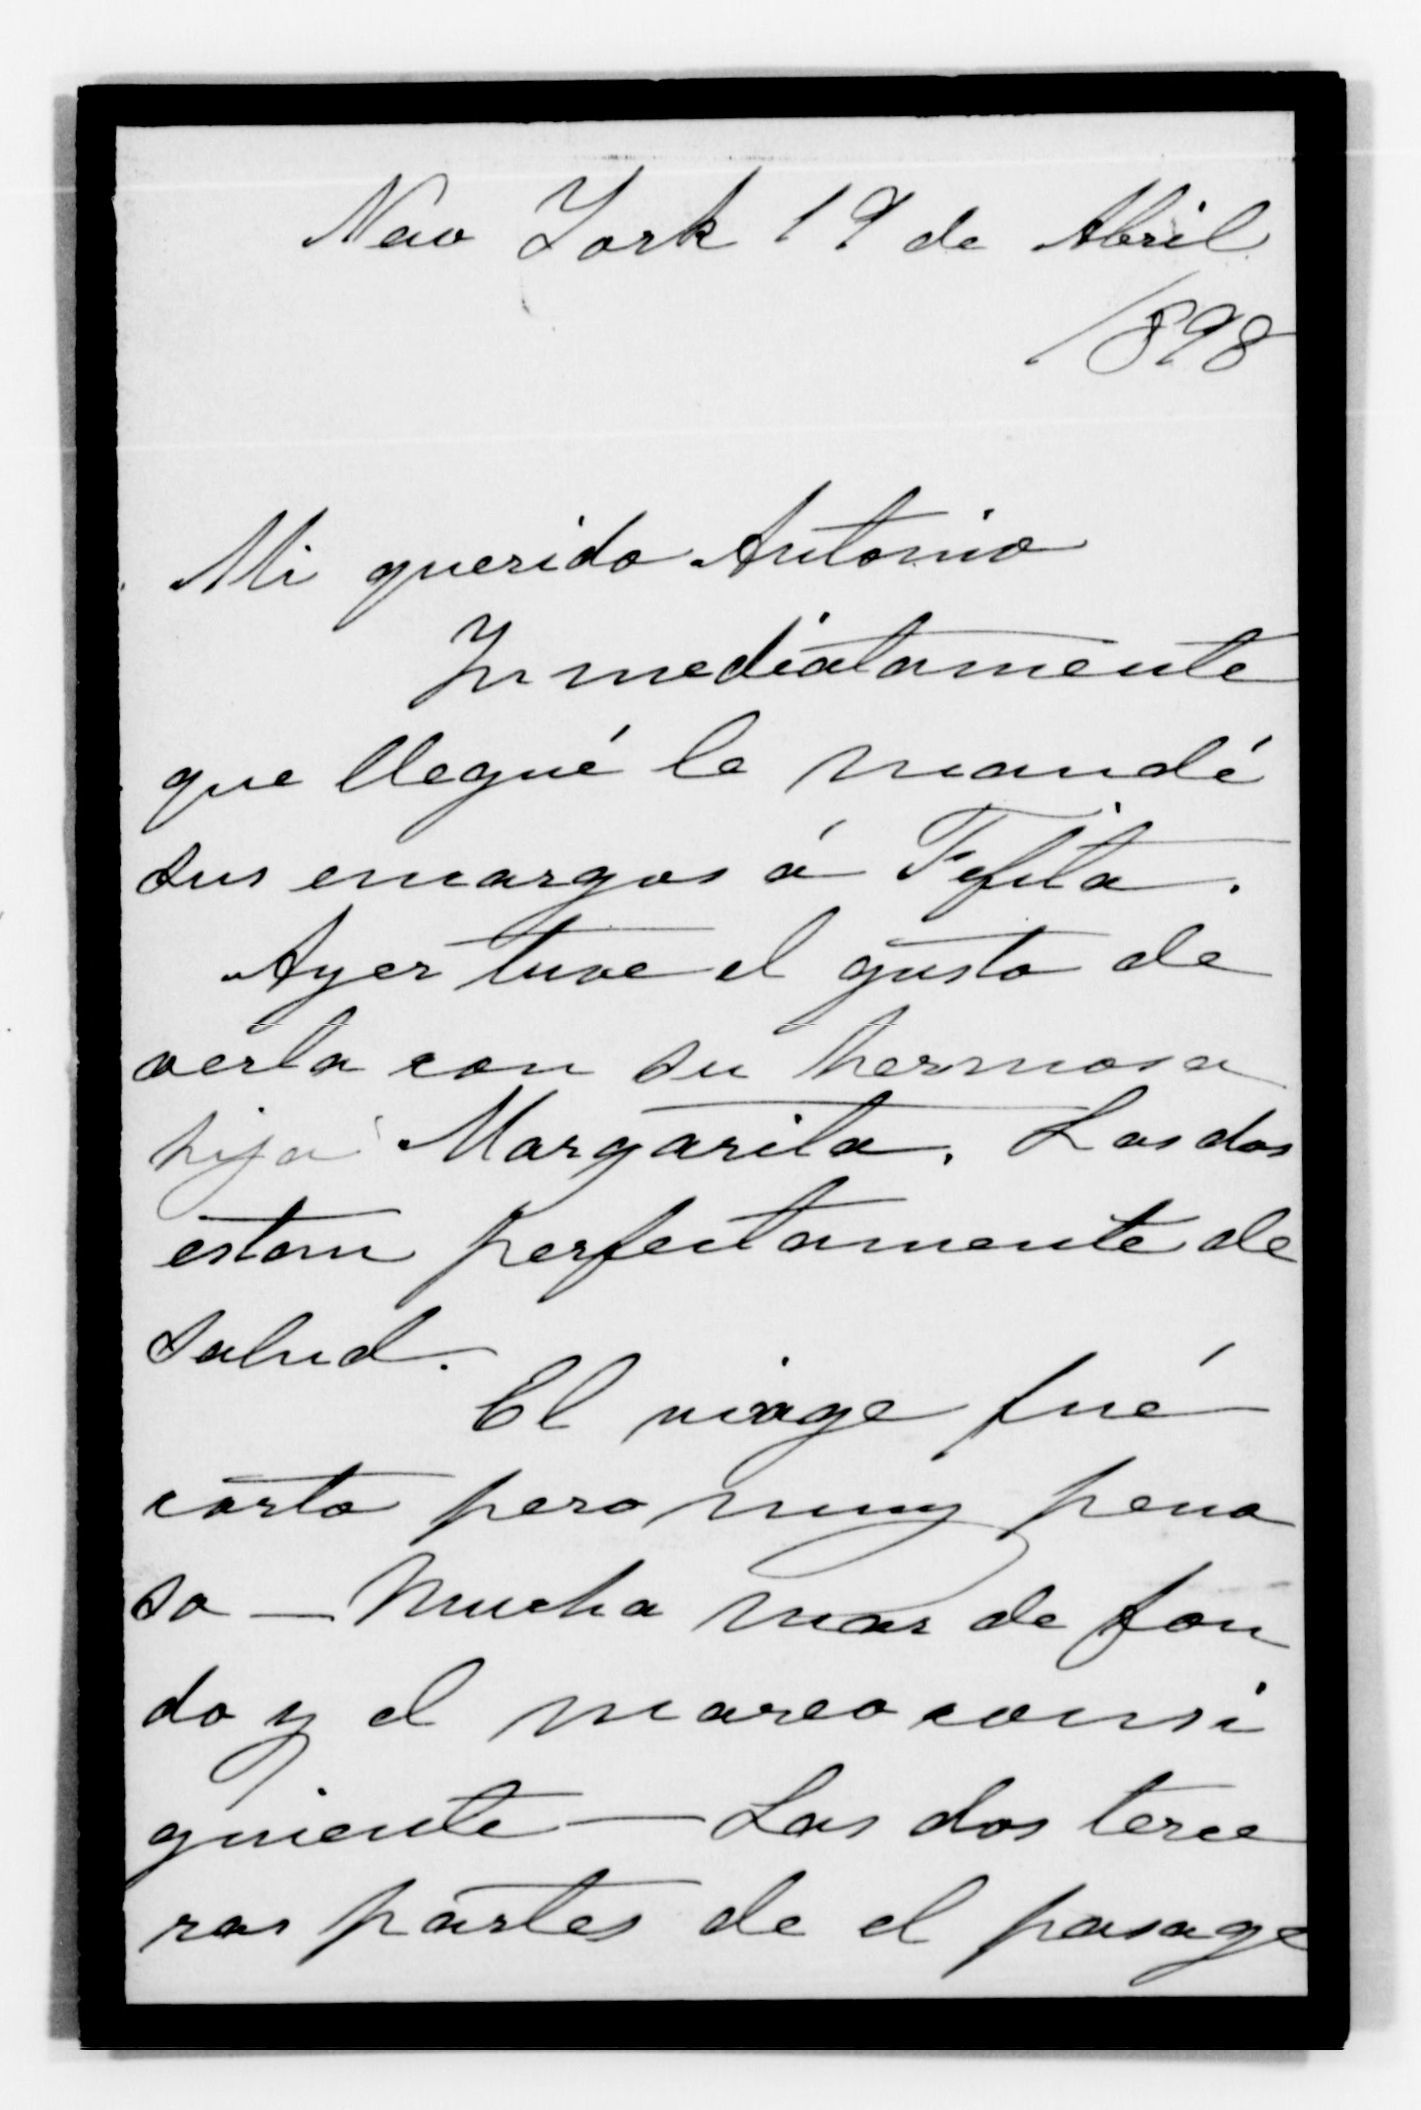 New York 19 de Abril
1898
Mi querido Antonio
Inmediatamente
que llegué le mandé
sus encargos á Fefita.
Ayer tuve el gusto de
verla con su hermosa
hija Margarita. Las dos
estan perfectamente de
salud.
El viage fué
corto pero muy peno
so — Mucha mar de fon
do y el mareo consi
guiente — Las dos terce
ras partes de el pasage